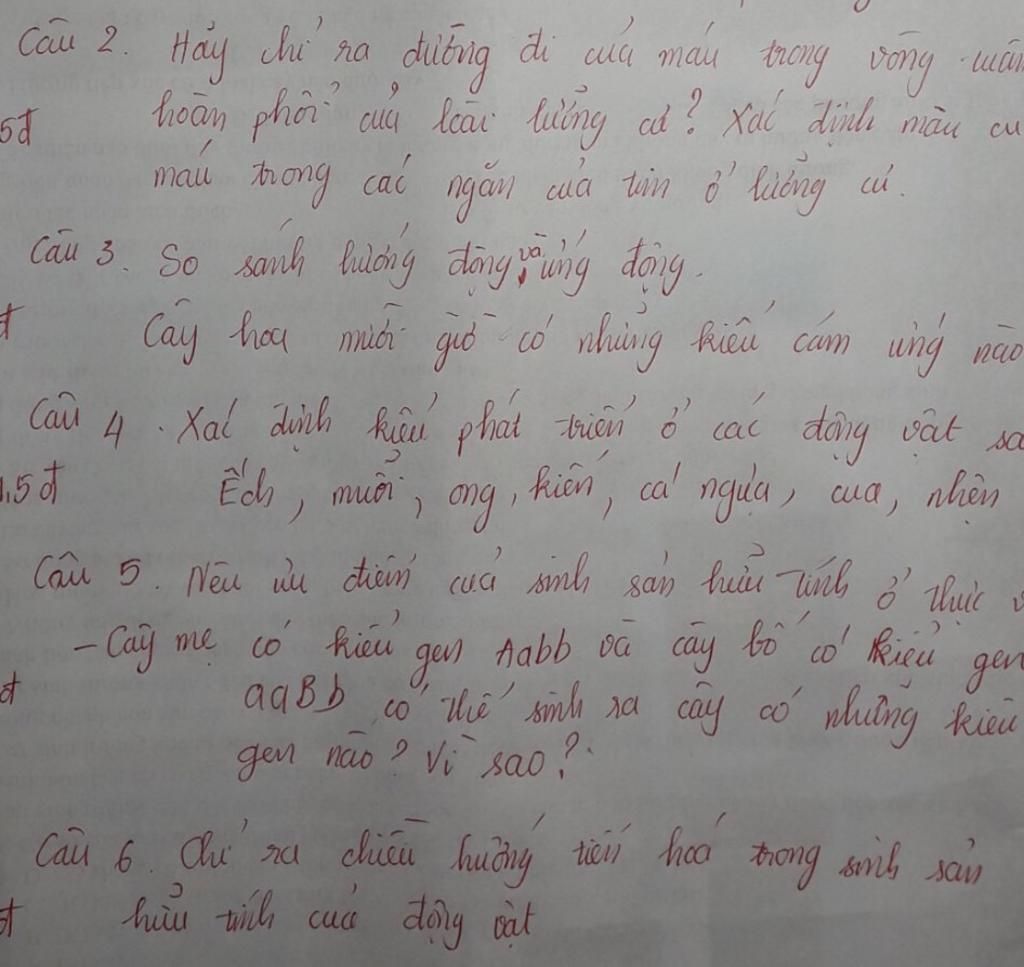 Câu 2. Hãy chỉ ra đường đi của máu trong vòng tuần
5đ hoàn phổi của loài lưỡng cư? Xác định màu củ
máu trong các ngăn của tim ở lưỡng cư.
Câu 3. So sánh hướng động và ứng động.
đ Cây hoa mười giờ có những kiểu cảm ứng nào
Câu 4. Xác định kiểu phát triển ở các động vật sa
1,5đ Ếch, muỗi, ong, kiến, cá ngựa, cua, nhện
Câu 5. Nêu ưu điểm của sinh sản hữu tính ở thực v
- Cây mẹ có kiểu gen Aabb và cây bố có kiểu gen
đ aaBb có thể sinh ra cây có những kiểu
gen nào? Vì sao?
Câu 6. Chỉ ra chiều hướng tiến hoá trong sinh sản
đ hữu tính của động vật